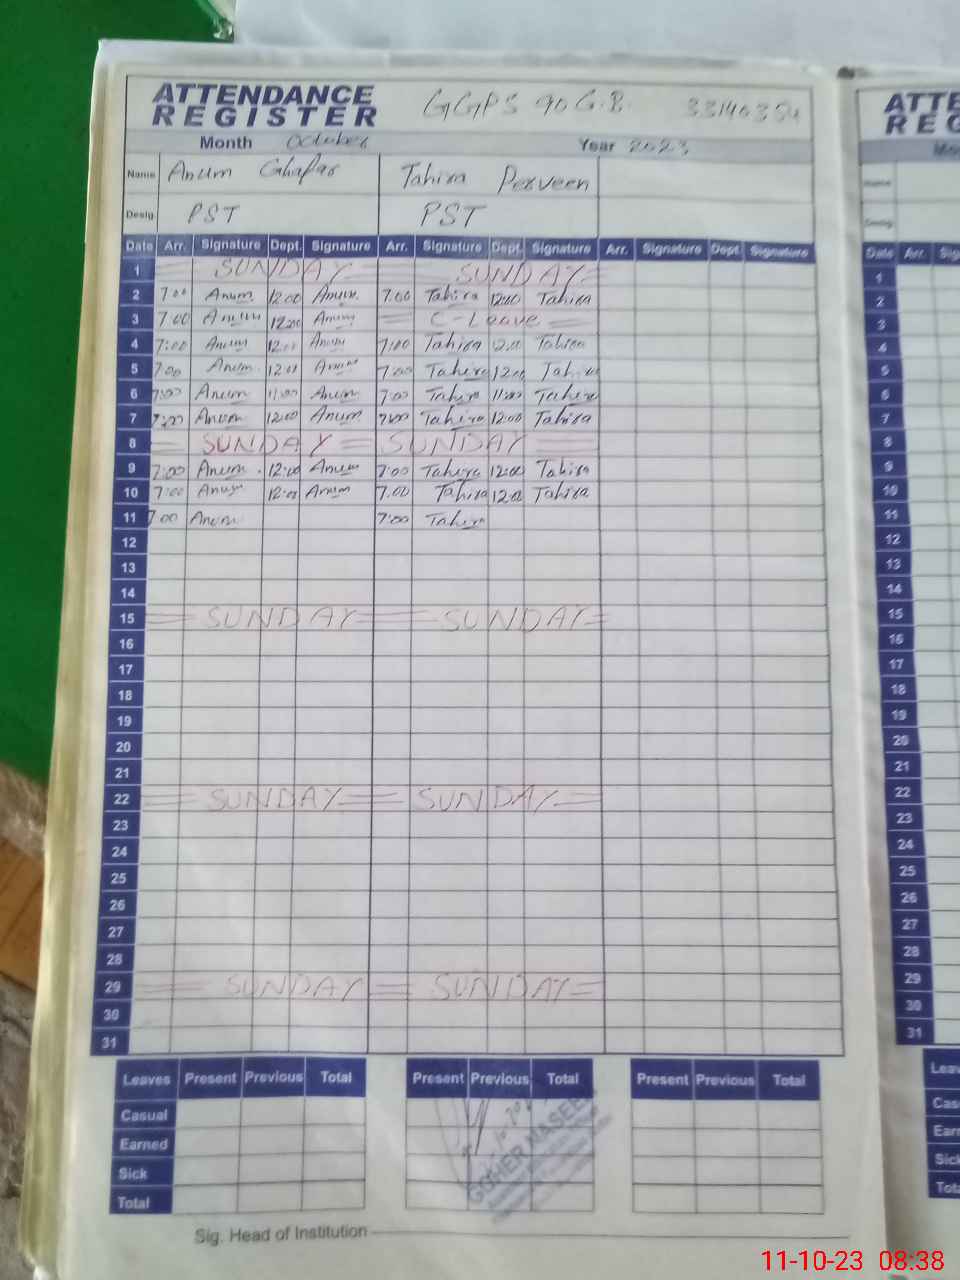 ATTENDANCE
REGISTER
GGPS 90 G.B.
Month October Year 2023
Name Anum Ghafar Tahira Perveen
Desig. PST PST
Date Arr. Signature Dept. Signature Arr. Signature Dept. Signature Arr. Signature Dept. Signature
1 SUNDAY SUNDAY
2 7:00 Anum 12:00 Anum 7:00 Tahira 12:00 Tahira
3 7:00 Anum 12:00 Anum C-Leave
4 7:00 Anum 12:00 Anum 7:00 Tahira 12:00 Tahira
5 7:00 Anum 12:00 Anum 7:00 Tahira 12:00 Tahira
6 7:00 Anum 11:00 Anum 7:00 Tahira 11:00 Tahira
7 7:00 Anum 12:00 Anum 7:00 Tahira 12:00 Tahira
8 SUNDAY SUNDAY
9 7:00 Anum 12:00 Anum 7:00 Tahira 12:00 Tahira
10 7:00 Anum 12:00 Anum 7:00 Tahira 12:00 Tahira
11 7:00 Anum 7:00 Tahira
12
13
14
15 SUNDAY SUNDAY
16
17
18
19
20
21
22 SUNDAY SUNDAY
23
24
25
26
27
28
29 SUNDAY SUNDAY
30
31
Leaves Present Previous Total Present Previous Total Present Previous Total
Casual
Earned
Sick
Total
GOHER NASEEM
Sig. Head of Institution
ATTE
REG
Date Arr. Sig
1
2
3
4
5
6
7
8
9
10
11
12
13
14
15
16
17
18
19
20
21
22
23
24
25
26
27
28
29
30
31
Leav
Cas
Earn
Sick
Tota
11-10-23 08:38